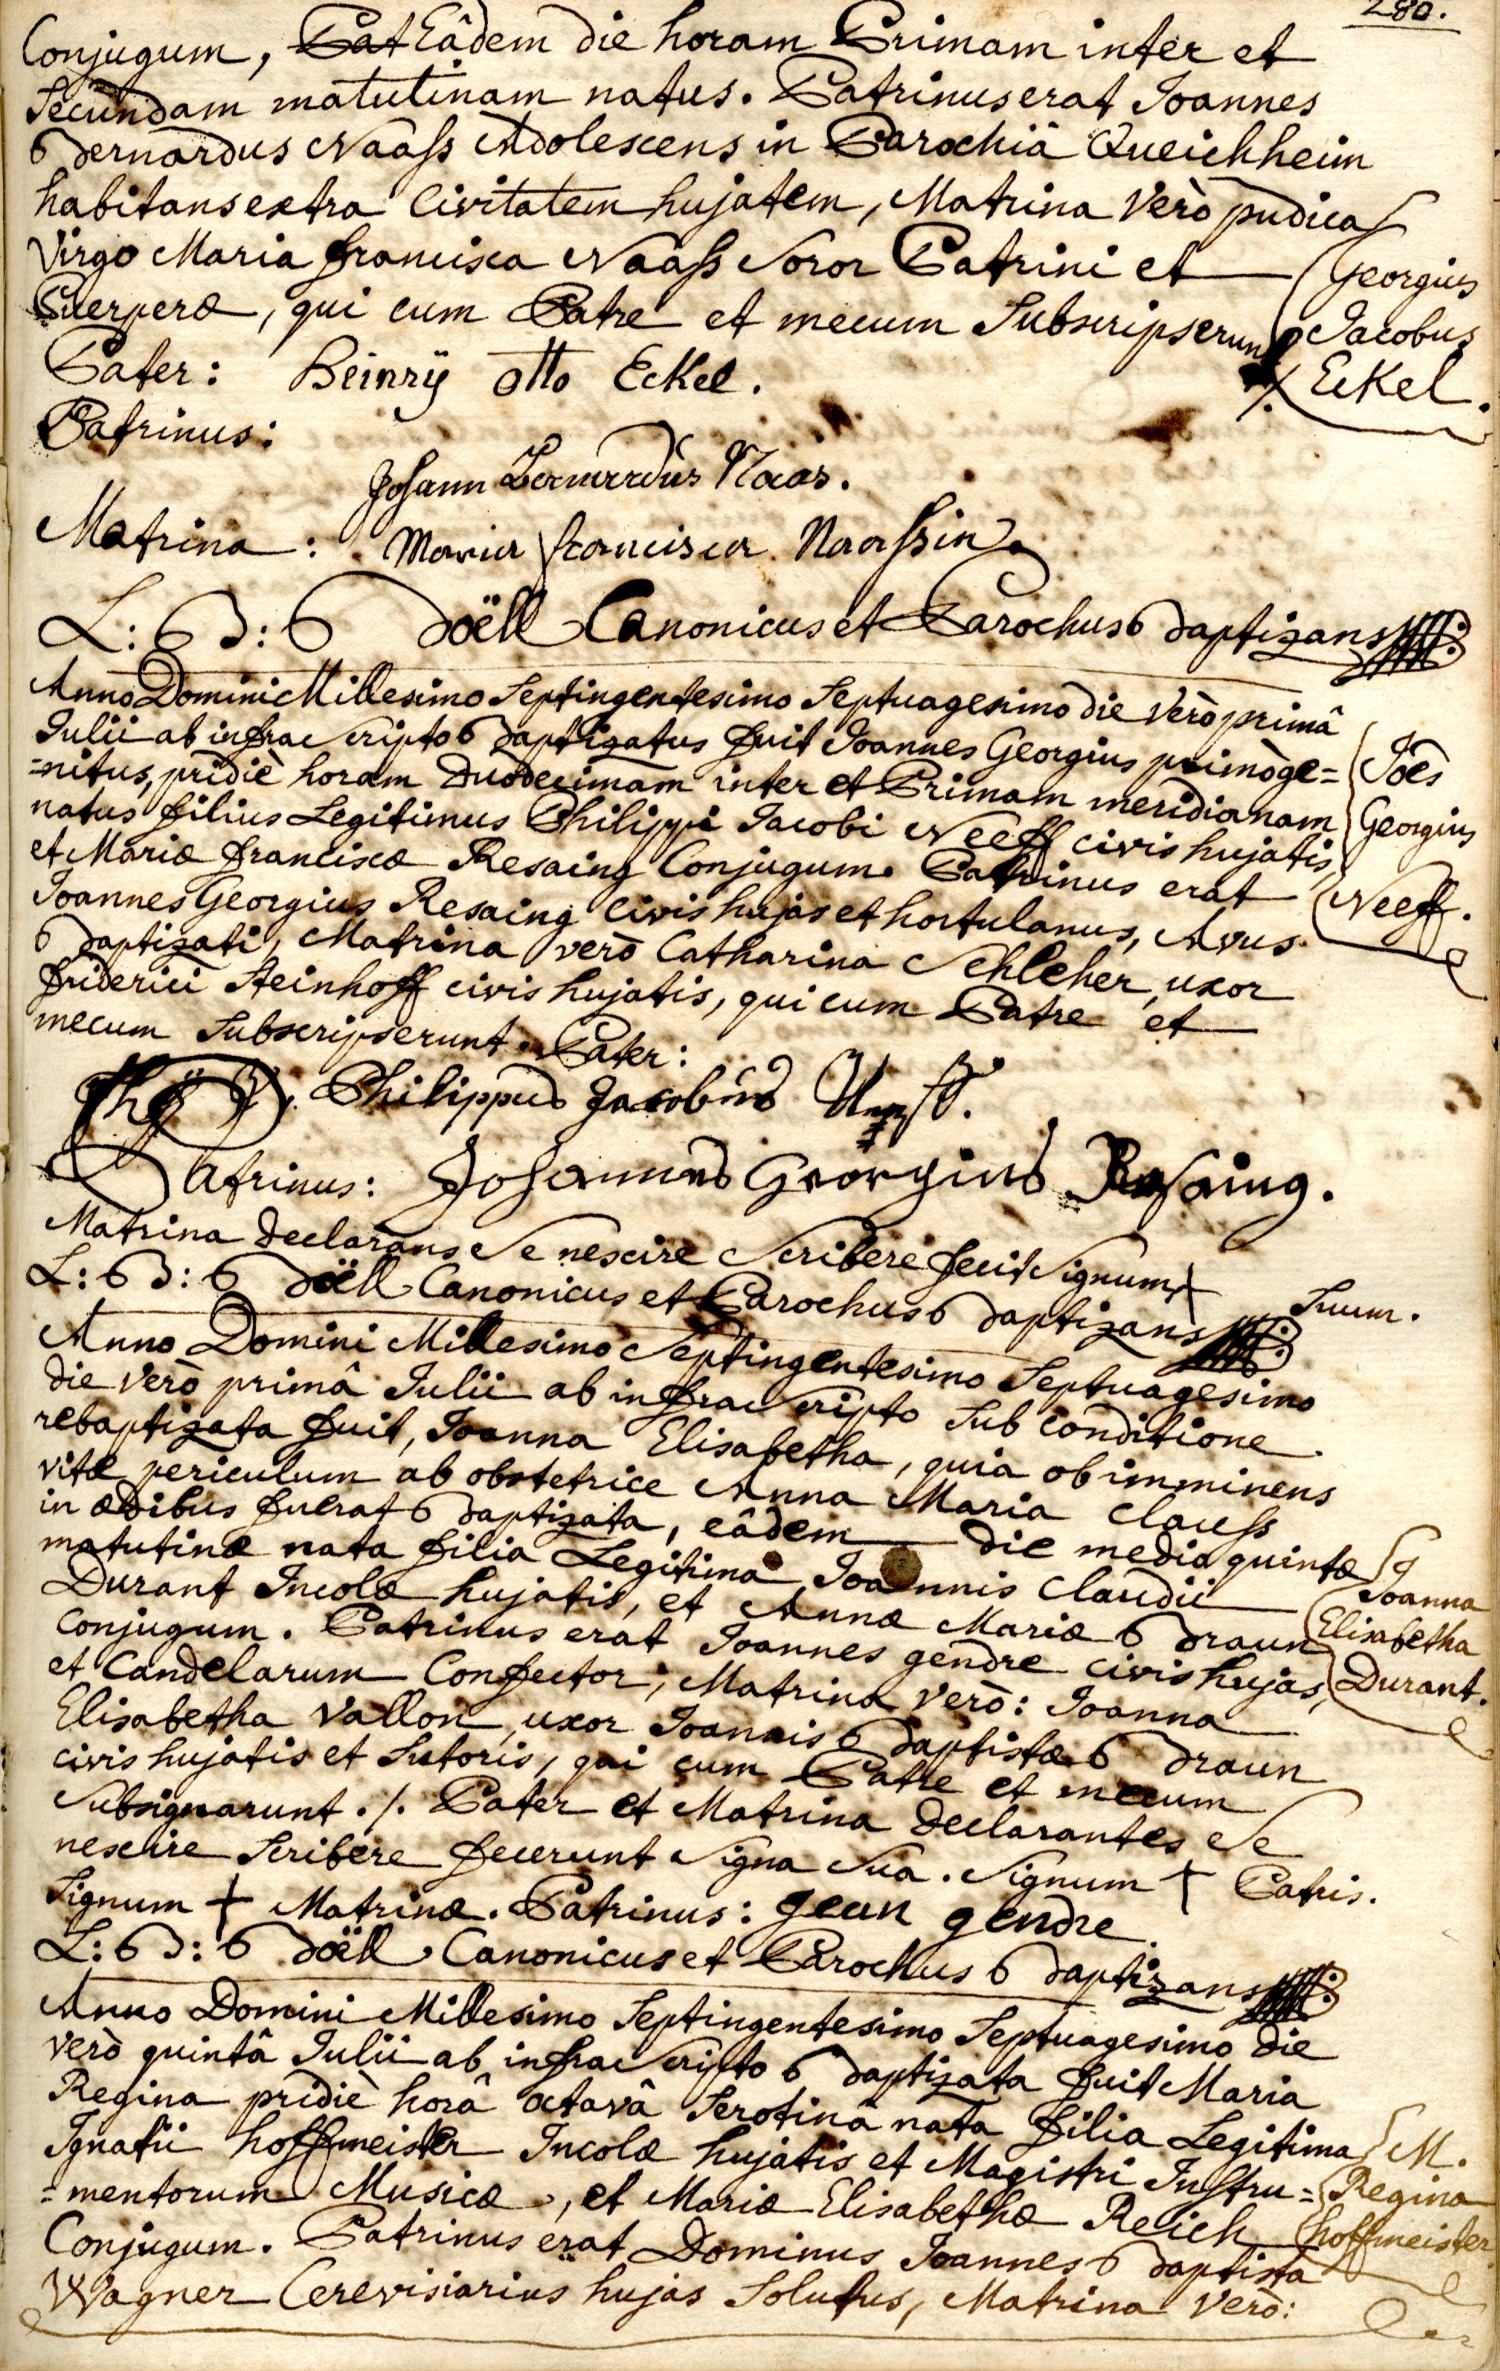 280.
Conjugum, Pat Eâdem die horam Primam inter et
Secundam matutinam natus. Patrinus erat Joannes
Bernardus Naaß Adolescens in Parochiâ Queichheim
habitans extra Civitatem hujatem, Matrina Verò pudica
Virgo Maria francisca Naaß Soror Patrini et
Puerperæ, qui cum Patre et mecum Subscripserunt ./.
Georgius
Jacobus
Eckel.
Pater: Heinrÿ otto Eckel.
Patrinus:
Johann Bernardus Naas.
Matrina: Maria francisca Naassin
L: B: Boëll Canonicus et Parochus Baptizans
Anno Domini Millesimo Septingentesimo Septuagesimo die Verò primâ
Julii ab infrascripto Baptizatus fuit Joannes Georgius primòge=
=nitus, pridiè horam Duodecimam inter et Primam meridianam
natus filius Legitimus Philippi Jacobi Neeff civis hujatis,
et Mariæ franciscæ Resaing Conjugum. Patrinus erat
Joannes Georgius Resaing Civis hujas et hortulanus, Avus
Baptizati, Matrina verò Catharina Schleher, uxor
friderici Steinhoff civis hujatis, qui cum Patre et
mecum Subscripserunt. Pater:
Joês
Georgius
Neeff.
Philippus Jacobus Neeff.
Patrinus: Johannes Georgius Resaing.
Matrina declarans Se nescire Scribere fecit Signum + Suum.
L: B: Boëll Canonicus et Parochus Baptizans
Anno Domini Millesimo Septingentesimo Septuagesimo
die Verò primâ Julii ab infrascripto Sub conditione
rebaptizata fuit, Joanna Elisabetha, quia ob imminens
vitæ periculum ab obstetrice Anna Maria Clauss
in ædibus fuerat Baptizata, eâdem die media quintæ
matutinæ nata filia Legitima Joannis Claudii
Durant Incolæ hujatis, et Annæ Mariæ Braun
Conjugum. Patrinus erat Joannes gendre civis hujas,
et Candelarum Confector, Matrina verò: Joanna
Elisabetha Vallon, uxor Joannis Baptistæ Braun
civis hujatis et Sutoris, qui cum Patre et mecum
Subsignarunt ./. Pater et Matrina declarantes Se
nescire Scribere fecerunt Signa Sua. Signum + Patris.
Signum + Matrinæ. Patrinus: gean gendre
Joanna
Elisabetha
Durant.
L: B: Boëll Canonicus et Parochus Baptizans
Anno Domini Millesimo Septingentesimo Septuagesimo die
verò quintâ Julii ab infrascripto Baptizata fuit Maria
Regina pridiè horâ octavâ Serotinâ nata filia Legitima
Ignatii hoffmeister Incolæ hujatis et Magistri Instru=
=mentorum Musicæ, et Mariæ Elisabethæ Reich
Conjugum. Patrinus erat Dominus Joannes Baptista
Wagner Cerevisiarius hujas Solutus, Matrina Verò:
M.
Regina
hoffmeister